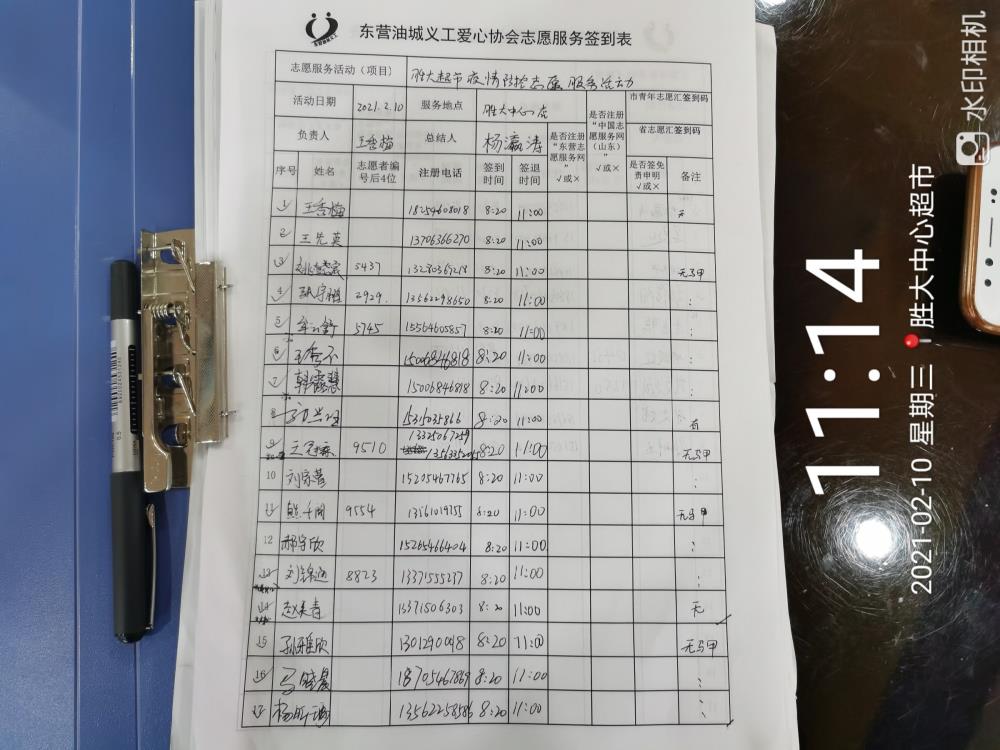 东营油城义工爱心协会志愿服务签到表
志愿服务活动（项目） 胜大超市疫情防控志愿服务活动
活动日期 2021.2.10 服务地点 胜大中心店 是否注册“中国志愿服务网（山东）”√或× 市青年志愿汇签到码
负责人 王香梅 总结人 杨瀛涛 是否注册“东营志愿服务网”√或× 省志愿汇签到码
序号 姓名 志愿者编号后4位 注册电话 签到时间 签退时间 是否签免责申明√或× 备注
1 王香梅 18254608018 8:20 11:00 无
2 王先英 13706366270 8:20 11:00
3 5437 8:20 11:00 无马甲
4 2929. 13562298650 8:20 11:00
5 5745 15564605857 8:20 11:00
6 8:20 11:00
7 15006846818 8:20 11:00
8 8:20 11:00 有
9 9510 8:20 11:00 无马甲
10 15205467765 8:20 11:00
11 9554 13561019755 8:20 11:00 无马甲
12 郝宇欣 15265466404 8:20 11:00
13 8823 13371555237 8:20 11:00
14 13371506303 8:20 11:00 无
15 8:20 11:00 无马甲
16 8:20 11:00
17 13562258586 8:20 11:00
水印相机
11:14
2021-02-10 星期三 胜大中心超市